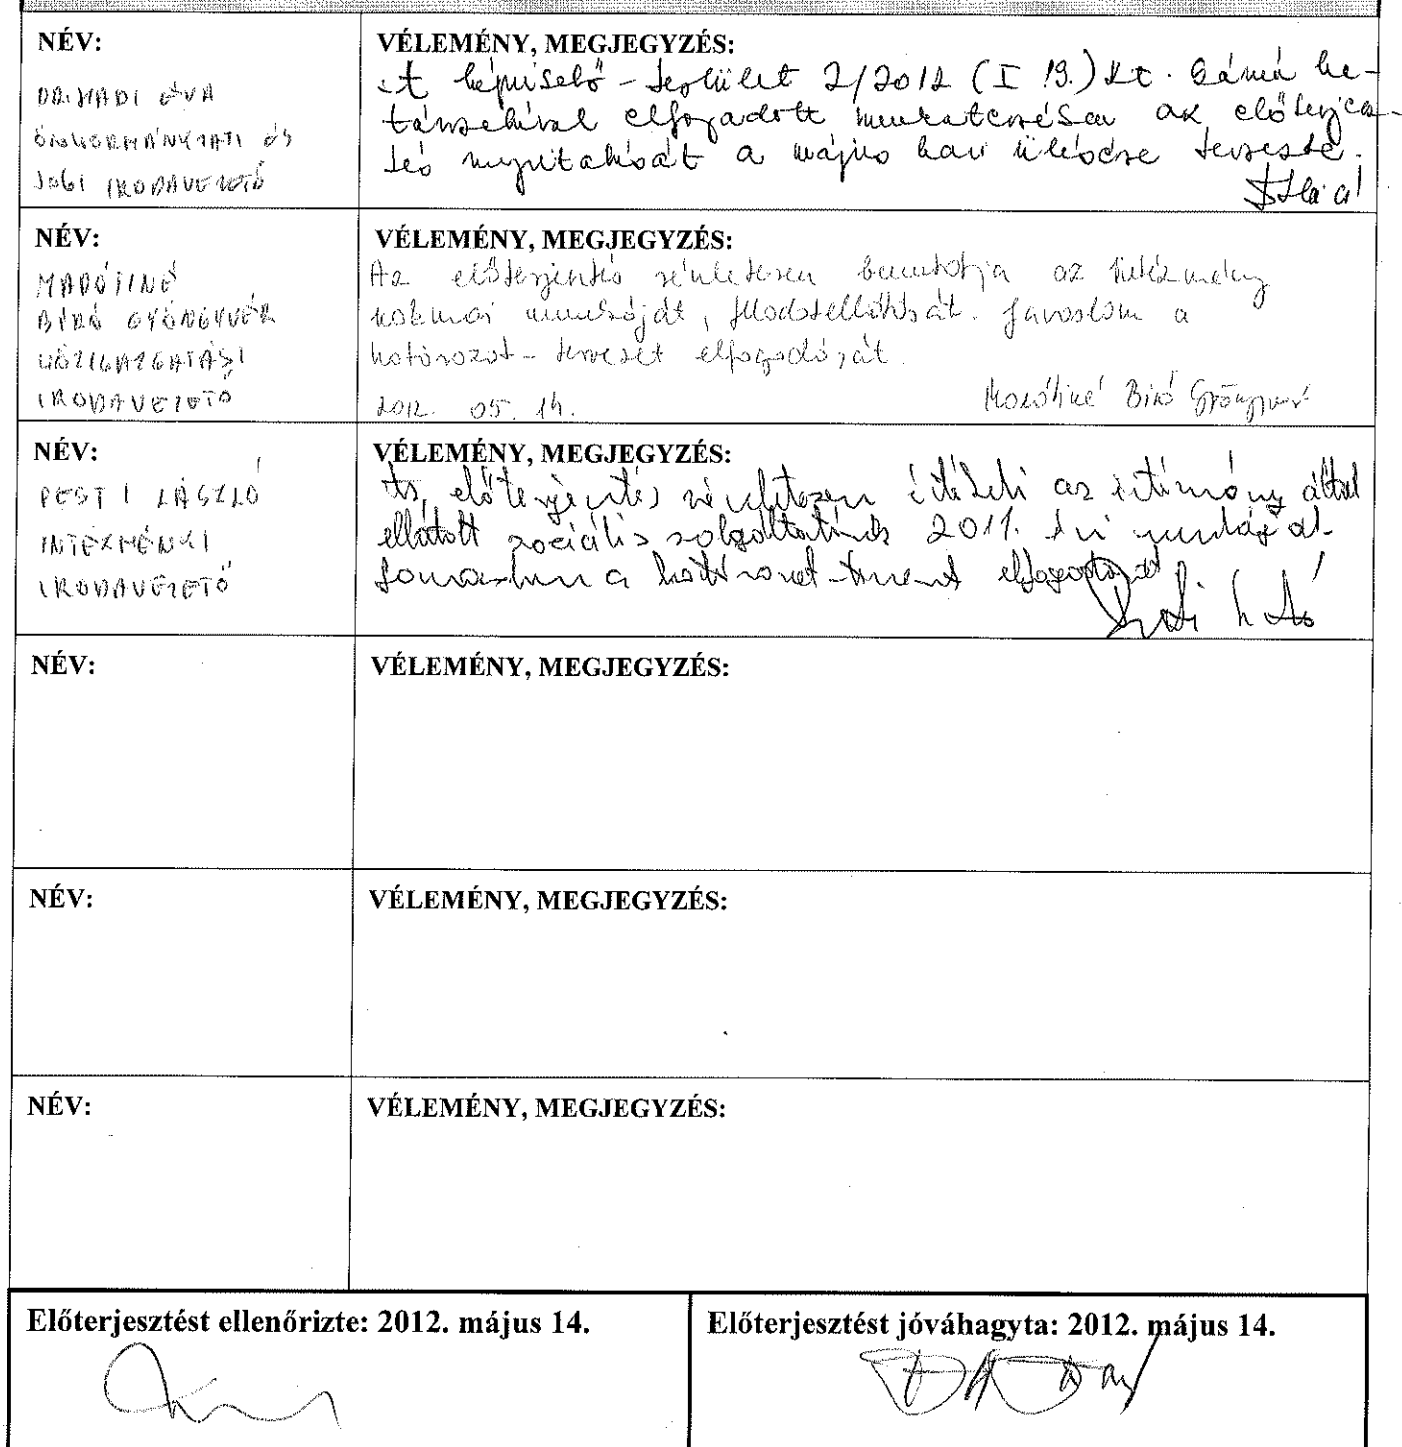 NÉV:
DR. HADI ÉVA
ÖNKORMÁNYZATI ÉS
JOGI IRODAVEZETŐ
VÉLEMÉNY, MEGJEGYZÉS:
A képviselő-testület 2/2012 (I 19.) Kt. számú ha-
tározatával elfogadott munkatervében az előterjesz-
tés megvitatását a május havi ülésére tervezte.
NÉV:
MARÓTINÉ
BÍRÓ GYÖNGYVÉR
KÖZIGAZGATÁSI
IRODAVEZETŐ
VÉLEMÉNY, MEGJEGYZÉS:
Az előterjesztés részletesen bemutatja az intézmény
szakmai munkáját, feladatellátását. Javaslom a
határozat-tervezet elfogadását.
2012. 05. 14.
Marótiné Bíró Gyöngyvér
NÉV:
PESTI LÁSZLÓ
INTÉZMÉNYI
IRODAVEZETŐ
VÉLEMÉNY, MEGJEGYZÉS:
Az előterjesztés részletesen értékeli az intézmény által
ellátott szociális szolgáltatások 2011. évi munkáját.
Javaslom a határozat-tervezet elfogadását
NÉV:
VÉLEMÉNY, MEGJEGYZÉS:
NÉV:
VÉLEMÉNY, MEGJEGYZÉS:
NÉV:
VÉLEMÉNY, MEGJEGYZÉS:
Előterjesztést ellenőrizte: 2012. május 14.
Előterjesztést jóváhagyta: 2012. május 14.